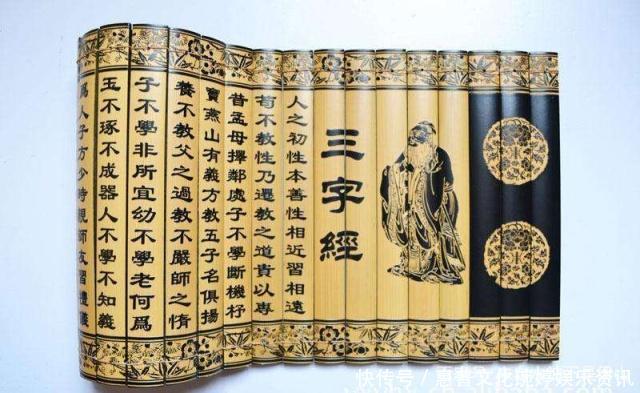 三字經
人之初性本善性相近習相遠
苟不教性乃遷教之道貴以専
昔孟母擇鄰處子不學斷機杼
寶燕山有義方教五子名俱揚
養不教父之過教不嚴師之惰
子不學非所宜幼不學老何爲
玉不琢不成器人不學不知義
爲人子方少時親師友習禮儀
快传号/